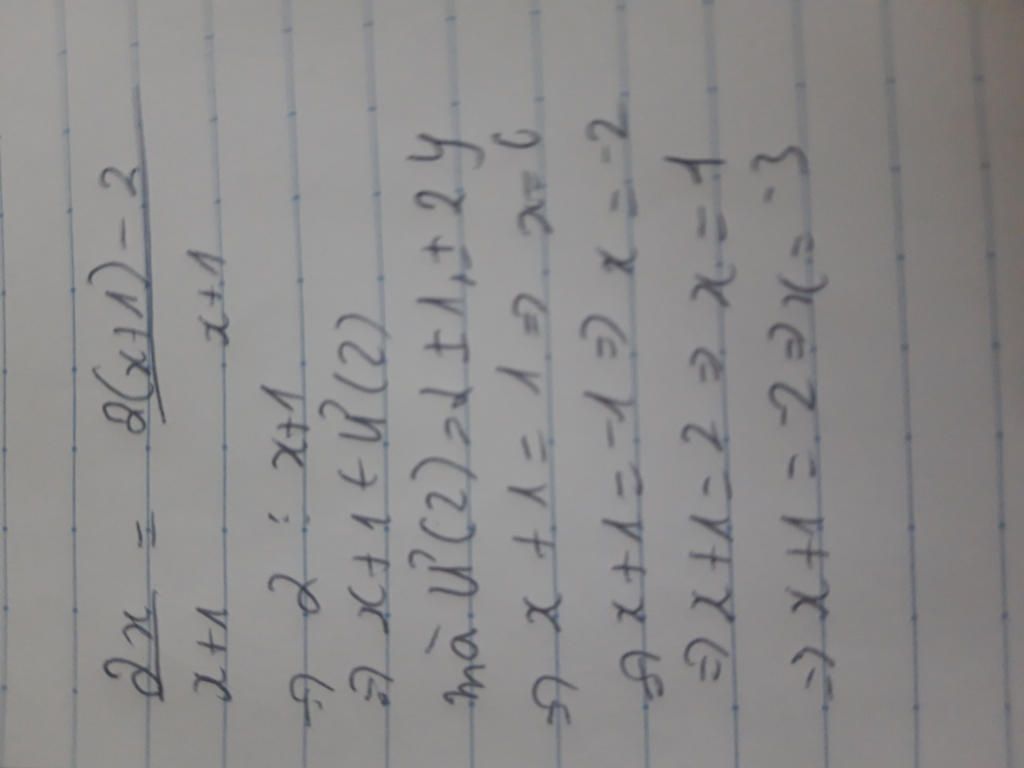 2x/x+1 = 2(x+1)-2/x+1
=> 2 ⋮ x+1
=> x+1 ∈ Ư(2)
mà Ư(2) = { ±1, ±2 }
=> x+1=1 => x=0
=> x+1=-1 => x=-2
=> x+1=2 => x=1
=> x+1=-2 => x=-3